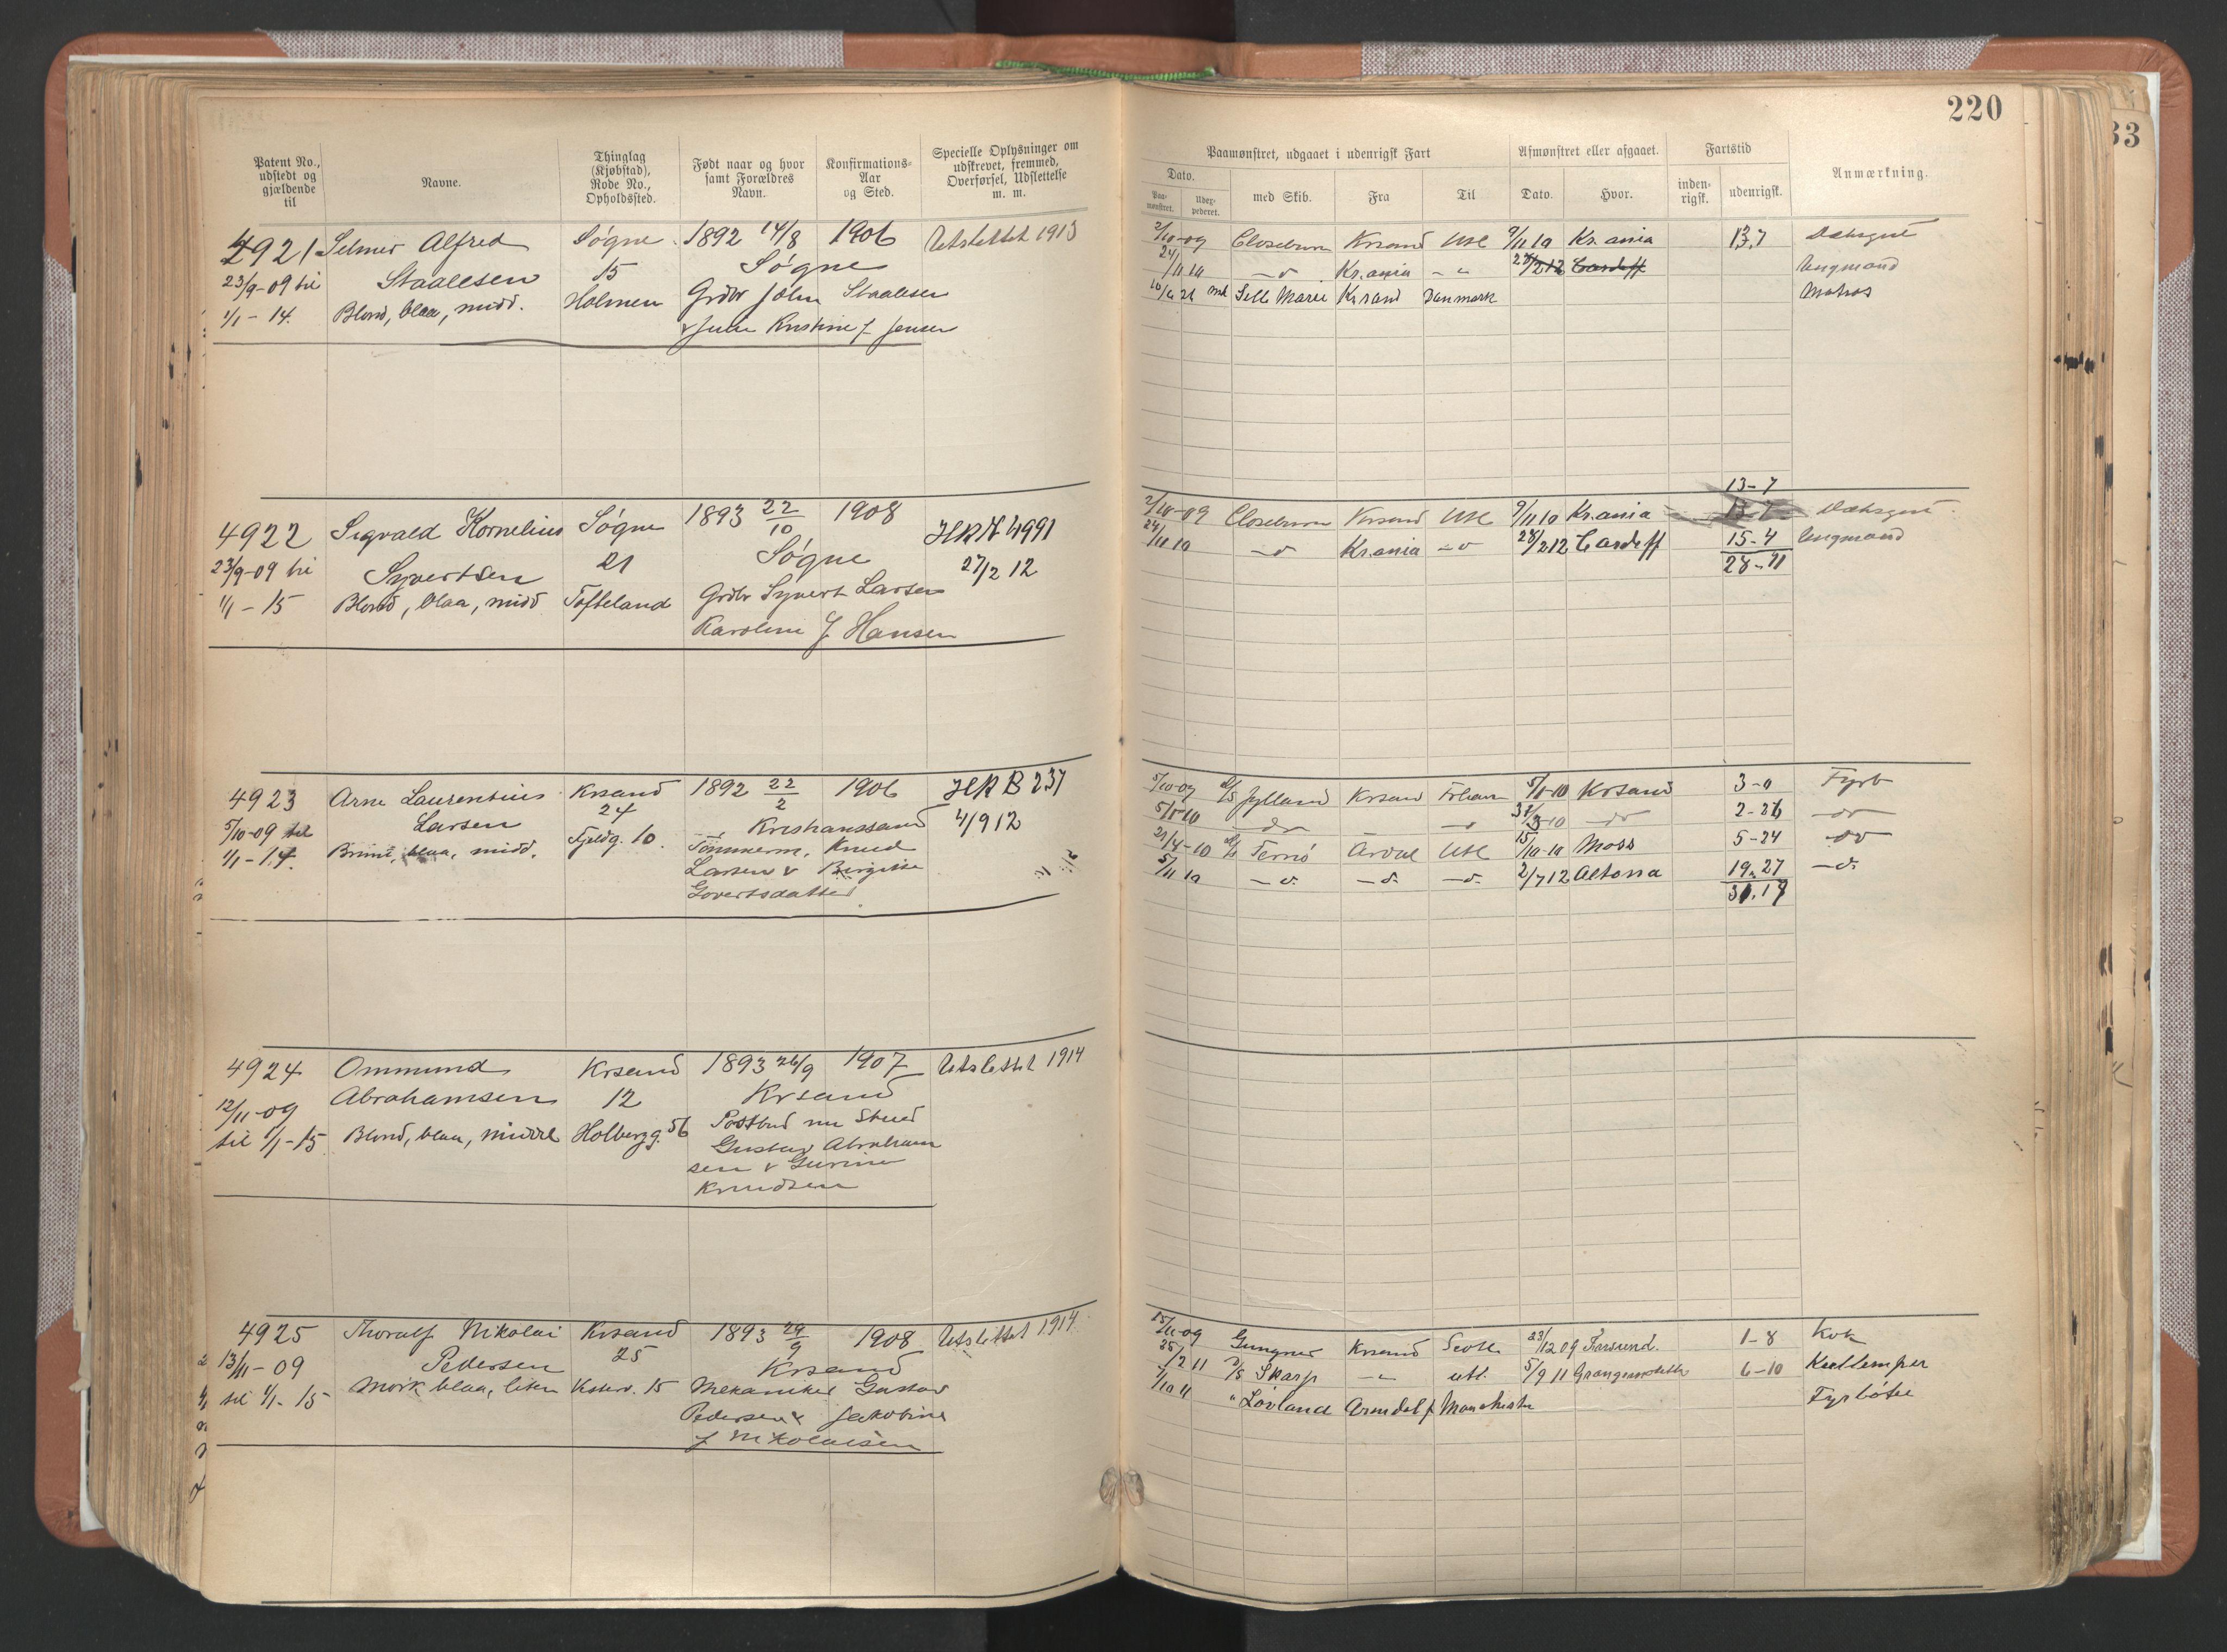 220
33
Patent No., udstedt og gjældende til
Navne.
Thinglag (Kjøbstad), Rode No., Opholdssted.
Født naar og hvor samt Forældres Navn.
Konfirmations-Aar og Sted.
Specielle Oplysninger om udskrevet, fremmed, Overførsel, Udslettelse m. m.
Paamønstret, udgaaet i udenrigsk Fart
Afmønstret eller afgaaet.
Fartstid
Anmærkning.
Dato.
Paa-mønstret.
med Skib.
Fra
Til
Dato.
Hvor.
inden-rigsk.
udenrigsk.
4921 Selmer Alfred Søgne 1892 14/8 1906 Utslettet 1913
23/9-09 til Staalesen 15 Søgne
1/1-14. Blond, blaa, midd. Holmen Grdbr John Staalesen
v Julie Kristine f Jensen
2/10-09 Closeburn Krsand Utl 9/11 10 Kr.ania 13,7 Dæksgut
24/11 10 Kr.ania 28/2 12 Cardiff Ungmand
Krsand Danmark Matros
4922 Sigvald Kornelius Søgne 1893 22/10 1908 HRN 4991
23/9-09 til Syvertsen 21 Søgne 27/2 12
1/1-15 Blond, blaa, midd Tofteland Grdbr Syvert Larsen
Karoline f Hansen
13-7
2/10-09 Closeburn Krsand Utl 9/11 10 Kr.ania Dæksgut
24/11 10 Kr.ania 28/2 12 Cardiff 15-4 Ungmand
28-11
4923 Arne Laurentius Krsand 1892 22/2 1906 HRB 237
5/10-09 til Larsen 24 Kristianssand 4/9 12
1/1-14. Brunt, blaa, midd. Fjeldg. 10. Tømmerm. Knud
Larsen v Birgitte
Govertsdatter
5/10-09 Jylland Krsand Frhavn 5/1-10 Krsand 3-0 Fyrb
5/1-10 do 31/3-10 do 2-26 do
21/4-10 Ternø Ardal Utl 15/10-10 Moss 5-24 do
5/11 10 2/7 12 Altona 19.27
31.17
4924 Ommund Krsand 1893 26/9 1907 Utslettet 1914
12/11-09 Abrahamsen 12 Krsand
til 1/1-15 Blond, blaa, middel Holbergg. 56 Postbud nu Stued
Gustav Abraham
sen v Gurine
Knudsen
4925 Thoralf Nikolai Krsand 1893 29/9 1908 Utslettet 1914
13/11-09 Pedersen 25 Krsand
til 1/1-15 Mørk blaa, liten Vesterv. 15 Mekaniker Gustav
Pedersen v Jakobine
f Nikolaisen
15/11-09 Gungner Krsand Scotl 23/12 09 Farsund. 1-8 Kok
25/2 11 Skarp utl. 5/9 11 Grangemouth 6-10 Kullemper
7/10 11 " Løvland Arendal f Manchester Fyrbøter